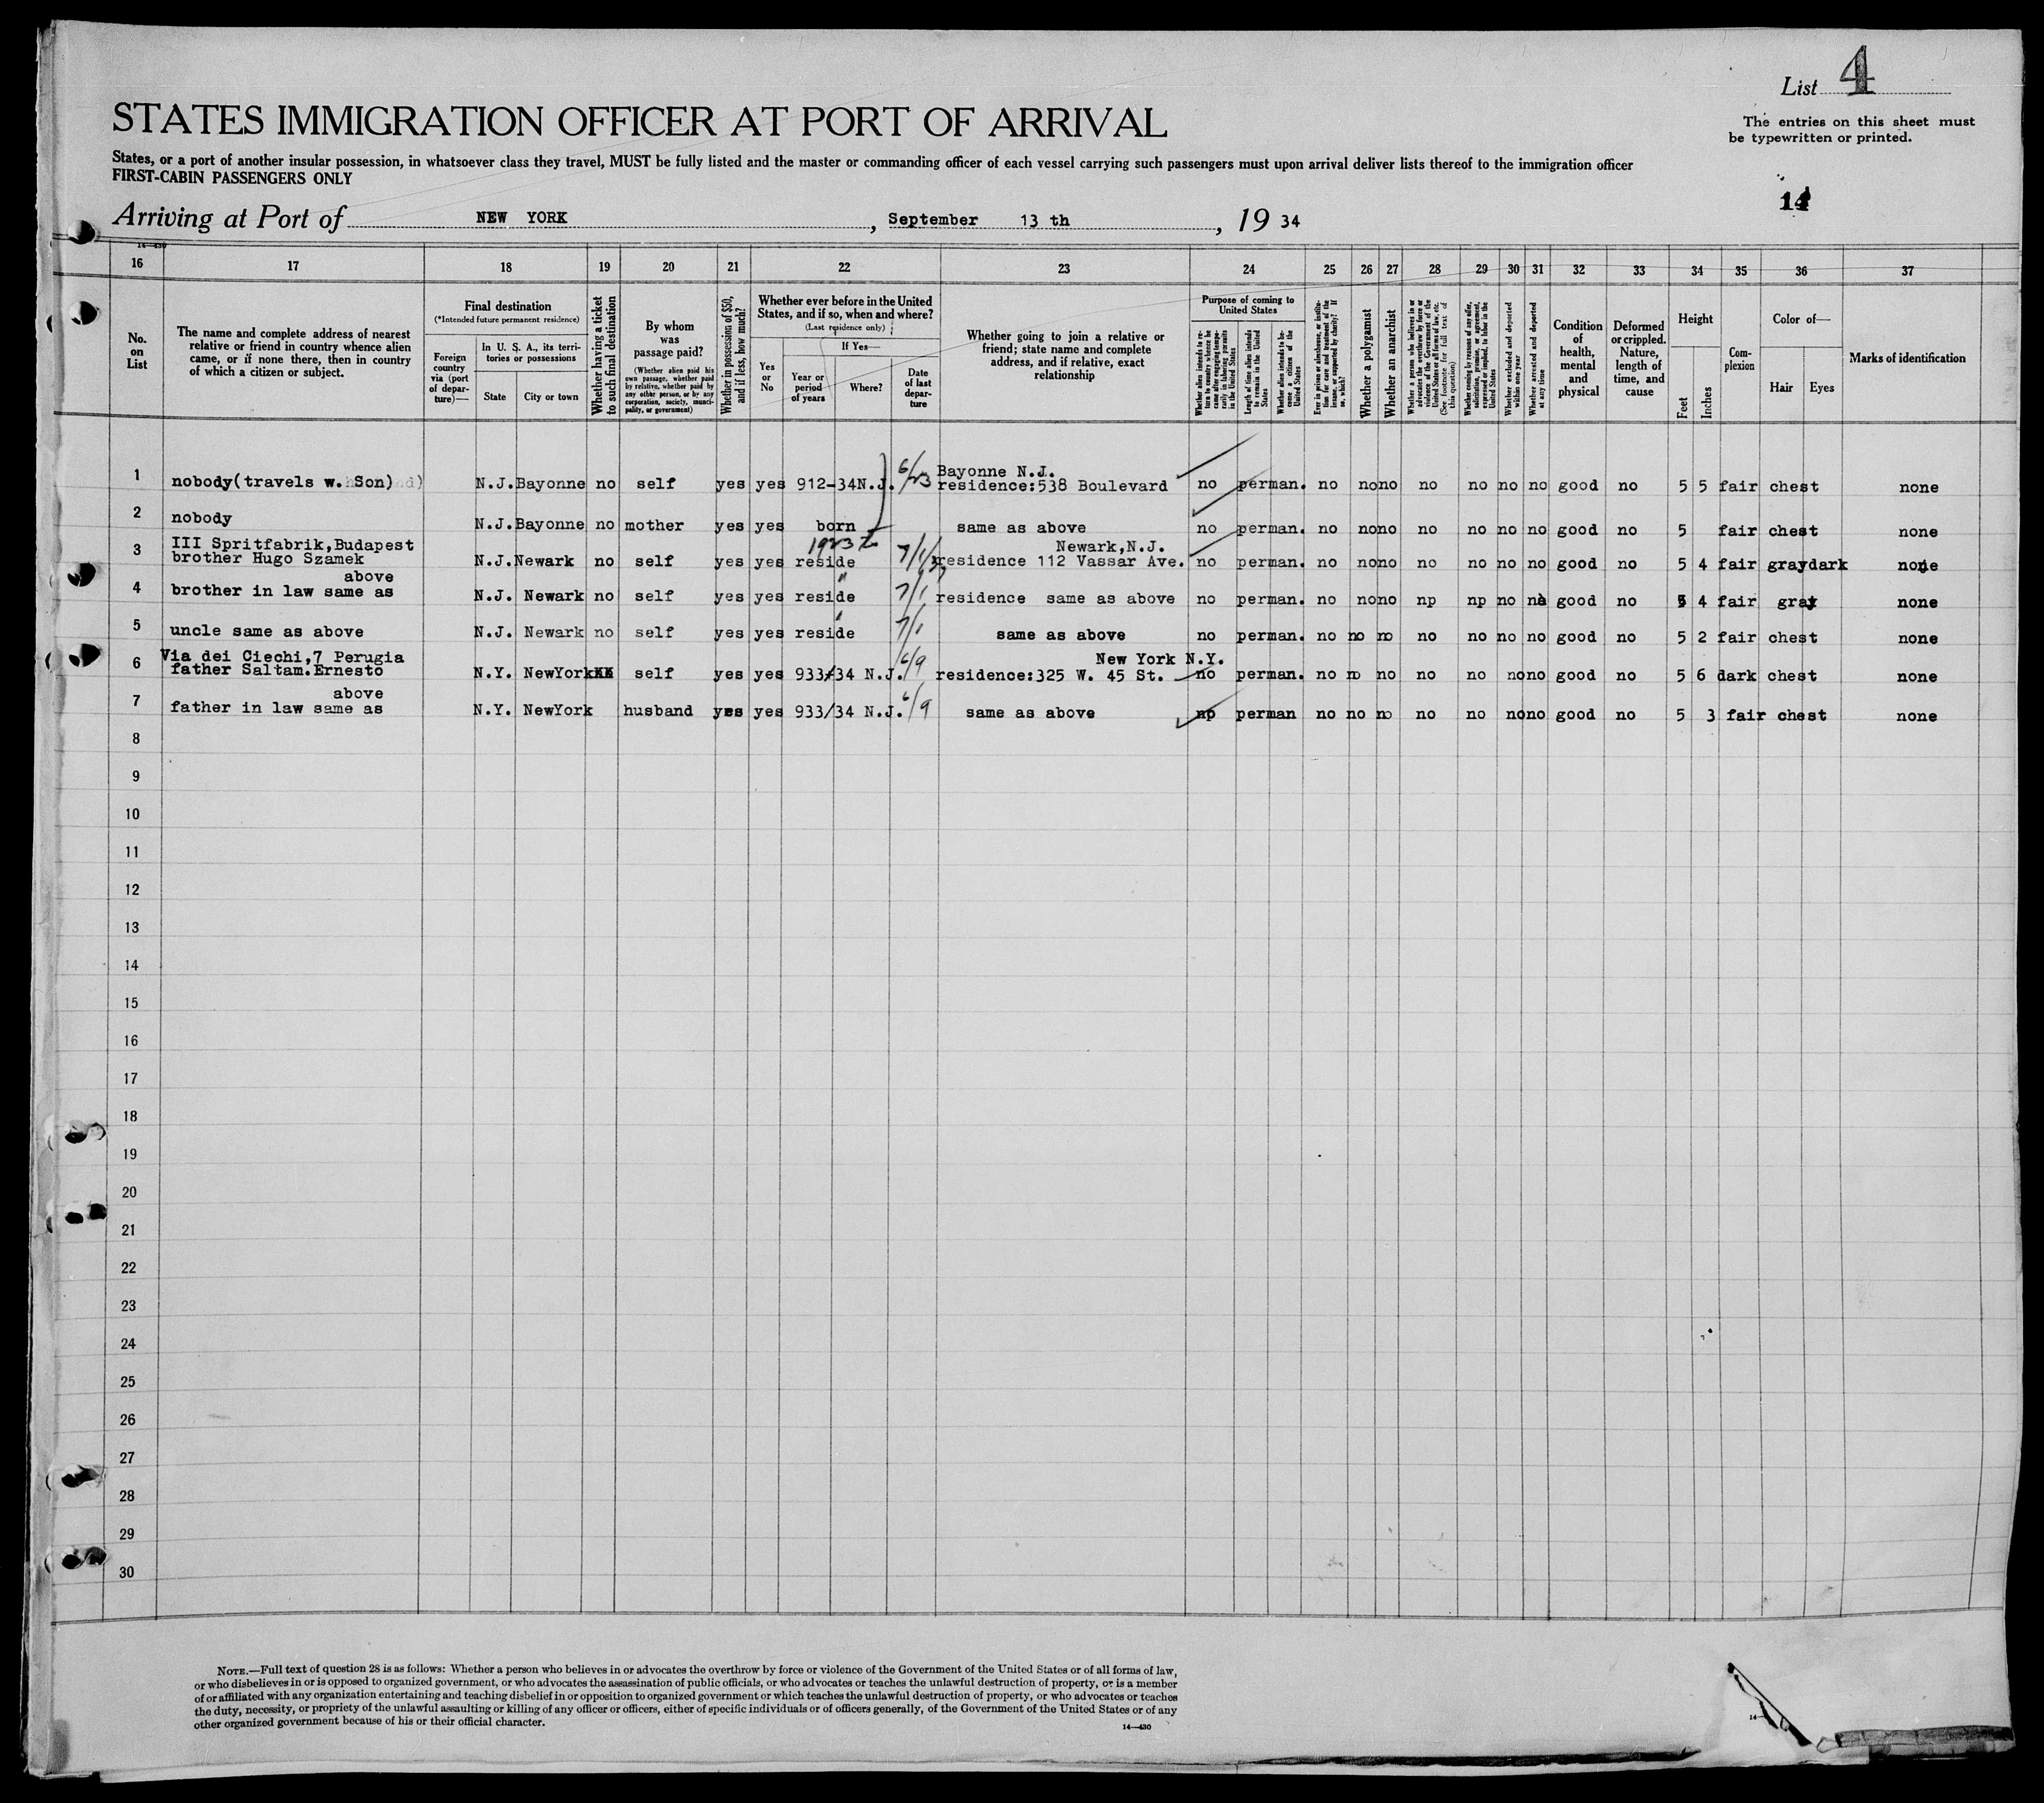 List 4
STATES IMMIGRATION OFFICER AT PORT OF ARRIVAL
The entries on this sheet must
be typewritten or printed.
States, or a port of another insular possession, in whatsoever class they travel, MUST be fully listed and the master or commanding officer of each vessel carrying such passengers must upon arrival deliver lists thereof to the immigration officer
FIRST-CABIN PASSENGERS ONLY
14
Arriving at Port of NEW YORK, September 13 th, 19 34
16 17 18 19 20 21 22 23 24 25 26 27 28 29 30 31 32 33 34 35 36 37
No. on List
The name and complete address of nearest relative or friend in country whence alien came, or if none there, then in country of which a citizen or subject.
Final destination
(*Intended future permanent residence)
Foreign country via (port of departure)—
In U. S. A., its territories or possessions
State
City or town
Whether having a ticket to such final destination
By whom was passage paid?
(Whether alien paid his own passage, whether paid by relative, whether paid by any other person, or by any corporation, society, municipality, or government)
Whether in possession of $50, and if less, how much?
Whether ever before in the United States, and if so, when and where?
(Last residence only)
Yes or No
If Yes—
Year or period of years
Where?
Date of last departure
Whether going to join a relative or friend; state name and complete address, and if relative, exact relationship
Purpose of coming to United States
Length of time alien intends to remain in the United States
Whether alien intends to become a citizen of the United States
Whether a polygamist
Whether an anarchist
Whether excluded and deported within one year
Whether arrested and deported at any time
Condition of health, mental and physical
Deformed or crippled. Nature, length of time, and cause
Height
Feet
Inches
Complexion
Color of—
Hair Eyes
Marks of identification
1 nobody(travels w. Son) N.J. Bayonne no self yes yes 912-34 N.J. 6/23 Bayonne N.J. residence:538 Boulevard no perman. no no no no no no no good no 5 5 fair chest none
2 nobody N.J. Bayonne no mother yes yes born same as above no perman. no no no no no no no good no 5 fair chest none
1923 to
3 III Spritfabrik,Budapest brother Hugo Szamek N.J. Newark no self yes yes reside 7/1 Newark,N.J. residence 112 Vassar Ave. no perman. no no no no no no no good no 5 4 fair gray dark none
4 above brother in law same as N.J. Newark no self yes yes reside " 7/1 residence same as above no perman. no no no np np no no good no 5 4 fair gray none
5 uncle same as above N.J. Newark no self yes yes reside " 7/1 same as above no perman. no no no no no no no good no 5 2 fair chest none
6 Via dei Ciechi,7 Perugia father Saltam.Ernesto N.Y. NewYork XX self yes yes 933/34 N.J. 6/9 New York N.Y. residence:325 W. 45 St. no perman. no no no no no no no good no 5 6 dark chest none
7 above father in law same as N.Y. NewYork husband yes yes 933/34 N.J. 6/9 same as above np perman no no no no no no no good no 5 3 fair chest none
8
9
10
11
12
13
14
15
16
17
18
19
20
21
22
23
24
25
26
27
28
29
30
NOTE.—Full text of question 28 is as follows: Whether a person who believes in or advocates the overthrow by force or violence of the Government of the United States or of all forms of law,
or who disbelieves in or is opposed to organized government, or who advocates the assassination of public officials, or who advocates or teaches the unlawful destruction of property, or is a member
of or affiliated with any organization entertaining and teaching disbelief in or opposition to organized government or which teaches the unlawful destruction of property, or who advocates or teaches
the duty, necessity, or propriety of the unlawful assaulting or killing of any officer or officers, either of specific individuals or of officers generally, of the Government of the United States or of any
other organized government because of his or their official character.
14—430